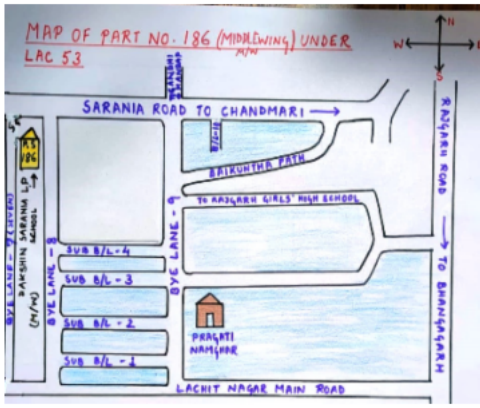 MAP OF PART NO. 186 (MIDDLEWING) UNDER
M/W
LAC 53
N
W
S
SARANIA ROAD TO CHANDMARI
B/L-10
BAIKUNTHA PATH
TO RAJGARH GIRLS' HIGH SCHOOL
RAJGARH ROAD
TO BHANGAGARH
P.S
186
DAKSHIN SARANIA L.P
SCHOOL
(M/W)
BYE LANE - 8
BYE LANE - 9
SUB B/L - 4
SUB B/L - 3
SUB B/L - 2
SUB B/L - 1
PRAGATI
NAMGHAR
LACHIT NAGAR MAIN ROAD